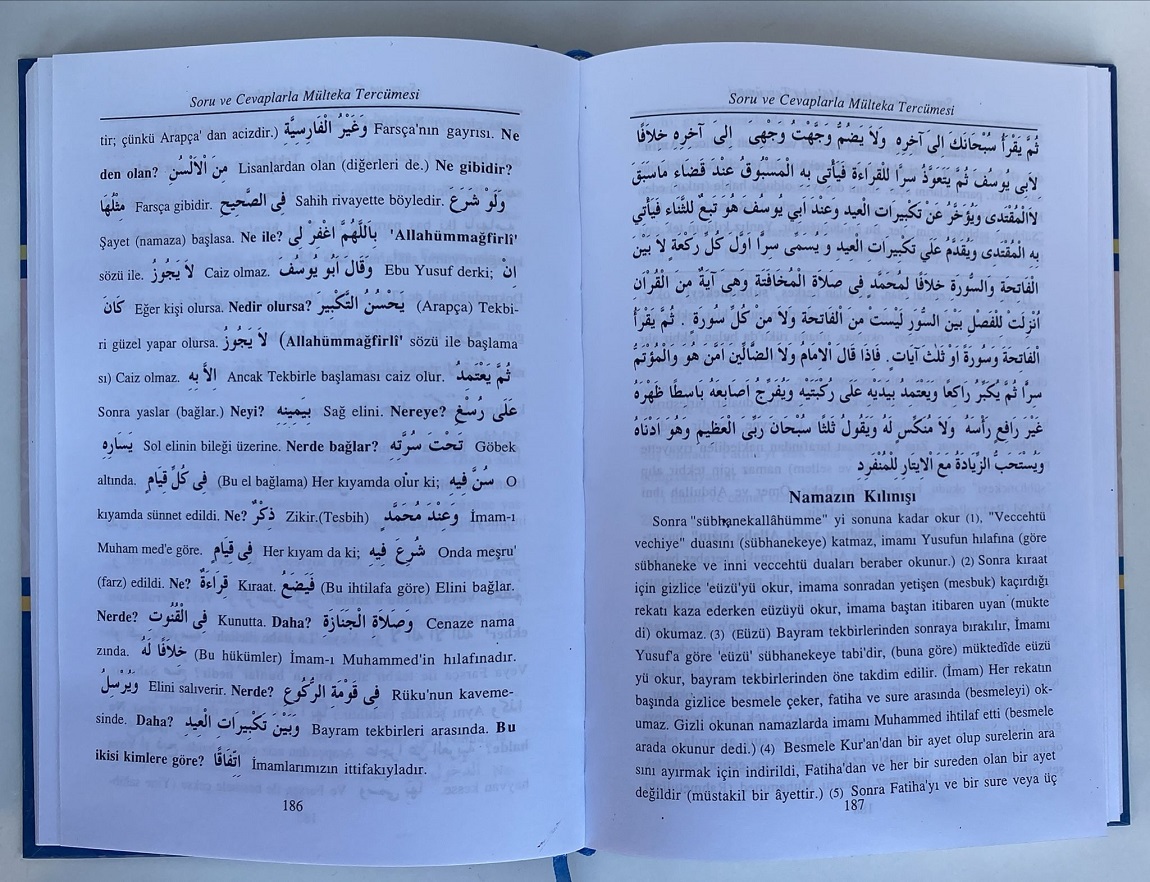 Soru ve Cevaplarla Mülteka Tercümesi
tir; çünkü Arapça' dan acizdir.) وَغَيْرُ الْفَارِسِيَّةِ Farsça'nın gayrısı. Ne
den olan? مِنَ الْاَلْسُنِ Lisanlardan olan (diğerleri de.) Ne gibidir?
مِثْلُهَا Farsça gibidir. فِى الصَّحِيحِ Sahih rivayette böyledir. وَلَوْ شَرَعَ
Şayet (namaza) başlasa. Ne ile? بِاَللّٰهُمَّ اغْفِرْ لِى 'Allahümmağfirlî'
sözü ile. لاَ يَجُوزُ Caiz olmaz. وَقَالَ اَبُو يُوسُفَ Ebu Yusuf derki; اِنْ
كَانَ Eğer kişi olursa. Nedir olursa? يَحْسُنُ التَّكْبِيرَ (Arapça) Tekbi-
ri güzel yapar olursa. لاَ يَجُوزُ (Allahümmağfirlî' sözü ile başlama
sı) Caiz olmaz. اِلاَّ بِهِ Ancak Tekbirle başlaması caiz olur. ثُمَّ يَعْتَمِدُ
Sonra yaslar (bağlar.) Neyi? بِيَمِينِهِ Sağ elini. Nereye? عَلَى رُسْغِ
يَسَارِهِ Sol elinin bileği üzerine. Nerde bağlar? تَحْتَ سُرَّتِهِ Göbek
altında. فِى كُلِّ قِيَامٍ (Bu el bağlama) Her kıyamda olur ki; سُنَّ فِيهِ O
kıyamda sünnet edildi. Ne? ذِكْرٌ Zikir.(Tesbih) وَعِنْدَ مُحَمَّدٍ İmam-ı
Muham med'e göre. فِى قِيَامٍ Her kıyam da ki; شُرِعَ فِيهِ Onda meşru'
(farz) edildi. Ne? قِرَاءَةٌ Kıraat. فَيَضَعُ (Bu ihtilafa göre) Elini bağlar.
Nerde? فِى الْقُنُوتِ Kunutta. Daha? وَصَلاَةِ الْجَنَازَةِ Cenaze nama
zında. خِلاَفًا لَهُ (Bu hükümler) İmam-ı Muhammed'in hılafınadır.
وَيُرْسِلُ Elini salıverir. Nerde? فِى قَوْمَةِ الرُّكُوعِ Rüku'nun kaveme-
sinde. Daha? وَبَيْنَ تَكْبِيرَاتِ الْعِيدِ Bayram tekbirleri arasında. Bu
ikisi kimlere göre? اِتِّفَاقًا İmamlarımızın ittifakıyladır.
186
Soru ve Cevaplarla Mülteka Tercümesi
ثُمَّ يَقْرَأُ سُبْحَانَكَ اِلىَ آخِرِهِ وَلاَ يَضُمُّ وَجَّهْتُ وَجْهِىَ اِلىَ آخِرِهِ خِلاَفًا
لِاَبِى يُوسُفَ ثُمَّ يَتَعَوَّذُ سِرًّا لِلْقِرَاءَةِ فَيَأْتِى بِهِ الْمَسْبُوقُ عِنْدَ قَضَاءِ مَاسَبَقَ
لاَالْمُقْتَدِى وَيُؤَخِّرُ عَنْ تَكْبِيرَاتِ الْعِيدِ وَعِنْدَ اَبِي يُوسُفَ هُوَ تَبَعٌ لِلثَّنَاءِ فَيَأْتِي
بِهِ الْمُقْتَدِى وَيُقَدَّمُ عَلَي تَكْبِيرَاتِ الْعِيدِ وَ يُسَمِّى سِرًّا اَوَّلَ كُلِّ رَكْعَةٍ لاَ بَيْنَ
الْفَاتِحَةِ وَالسُّورَةِ خِلاَفًا لِمُحَمَّدٍ فِى صَلاَةِ الْمُخَافَتَةِ وَهِىَ آيَةٌ مِنَ الْقُرْآنِ
اُنْزِلَتْ لِلْفَصْلِ بَيْنَ السُّوَرِ لَيْسَتْ مِنَ الْفَاتِحَةِ وَلاَ مِنْ كُلِّ سُورَةٍ . ثُمَّ يَقْرَأُ
الْفَاتِحَةَ وَسُورَةً اَوْ ثَلٰثَ آيَاتٍ. فَاِذَا قَالَ الْاِمَامُ وَلاَ الضَّالِّينَ اَمَّنَ هُوَ وَالْمُؤْتَمُّ
سِرًّا ثُمَّ يُكَبِّرُ رَاكِعًا وَيَعْتَمِدُ بِيَدَيْهِ عَلَى رُكْبَتَيْهِ وَيُفَرِّجُ اَصَابِعَهُ بَاسِطًا ظَهْرَهُ
غَيْرَ رَافِعٍ رَأْسَهُ وَلاَ مُنَكِّسٍ لَهُ وَيَقُولُ ثَلٰثًا سُبْحَانَ رَبِّىَ الْعَظِيمِ وَهُوَ اَدْنَاهُ
وَيُسْتَحَبُّ الزِّيَادَةُ مَعَ الْاِيتَارِ لِلْمُنْفَرِدِ
Namazın Kılınışı
Sonra "sübhanekallâhümme" yi sonuna kadar okur (1), "Veccehtü
vechiye" duasını (sübhanekeye) katmaz, imamı Yusufun hılafına (göre
sübhaneke ve inni veccehtü duaları beraber okunur.) (2) Sonra kıraat
için gizlice 'eüzü'yü okur, imama sonradan yetişen (mesbuk) kaçırdığı
rekatı kaza ederken eüzüyü okur, imama baştan itibaren uyan (mukte
di) okumaz. (3) (Eüzü) Bayram tekbirlerinden sonraya bırakılır, İmamı
Yusuf'a göre 'eüzü' sübhanekeye tabi'dir, (buna göre) müktedîde eüzü
yü okur, bayram tekbirlerinden öne takdim edilir. (İmam) Her rekatın
başında gizlice besmele çeker, fatiha ve sure arasında (besmeleyi) ok-
umaz. Gizli okunan namazlarda imamı Muhammed ihtilaf etti (besmele
arada okunur dedi.) (4) Besmele Kur'an'dan bir ayet olup surelerin ara
sını ayırmak için indirildi, Fatiha'dan ve her bir sureden olan bir ayet
değildir (müstakil bir âyettir.) (5) Sonra Fatiha'yı ve bir sure veya üç
187